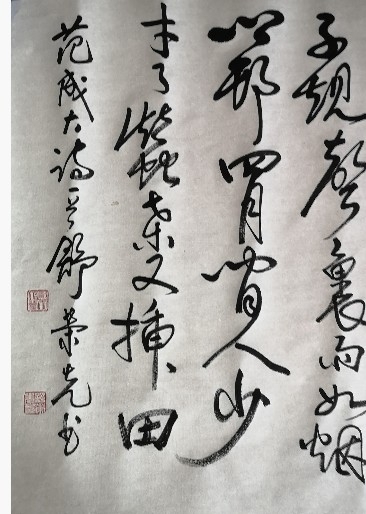 子規聲裏雨如烟
鄉邨四月閒人少
才了蠶桑又插田
范成大詩一首舒荣先书